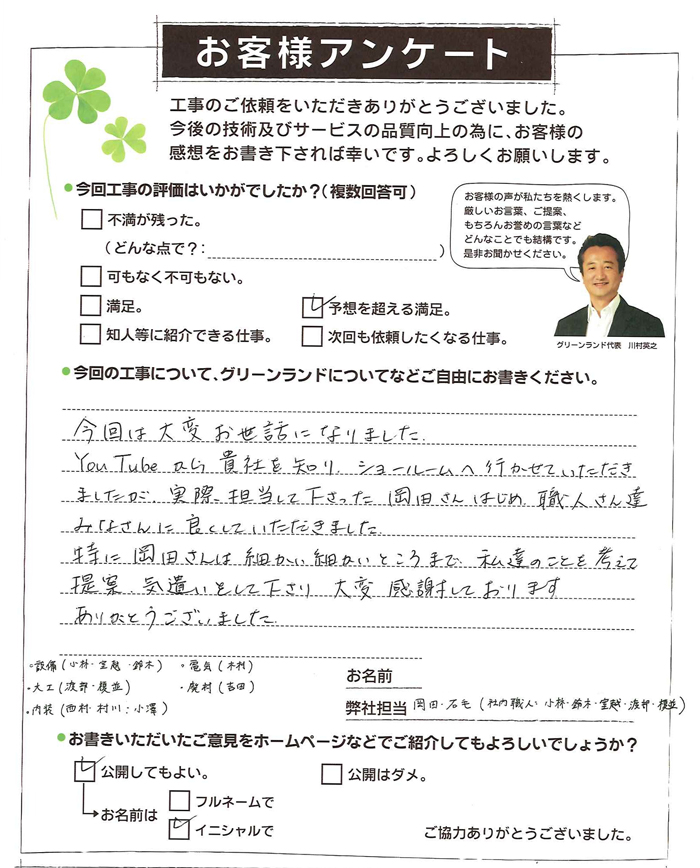 お客様アンケート
工事のご依頼をいただきありがとうございました。
今後の技術及びサービスの品質向上の為に、お客様の
感想をお書き下されば幸いです。よろしくお願いします。
今回工事の評価はいかがでしたか？（複数回答可）
不満が残った。
（どんな点で？： ）
可もなく不可もない。
満足。 予想を超える満足。
知人等に紹介できる仕事。 次回も依頼したくなる仕事。
お客様の声が私たちを熱くします。
厳しいお言葉、ご提案、
もちろんお誉めの言葉など
どんなことでも結構です。
是非お聞かせください。
グリーンランド代表 川村英之
今回の工事について、グリーンランドについてなどご自由にお書きください。
今回は大変お世話になりました。
YouTubeから貴社を知り、ショールームへ行かせていただき
ましたが、実際、担当して下さった岡田さんはじめ、職人さん達
みなさんに良くしていただきました。
特に岡田さんは細かい細かいところまで、私達のことを考えて
提案、気遣いをして下さり、大変感謝しております
ありがとうございました。
・設備（小林・室越・鈴木） ・電気（木村）
・大工（渡部・榎並） ・廃材（吉田）
・内装（西村・村川：小澤）
お名前
弊社担当 岡田・石毛（社内職人 小林・鈴木・室越・渡部・榎並）
お書きいただいたご意見をホームページなどでご紹介してもよろしいでしょうか？
公開してもよい。 公開はダメ。
お名前は フルネームで
イニシャルで
ご協力ありがとうございました。